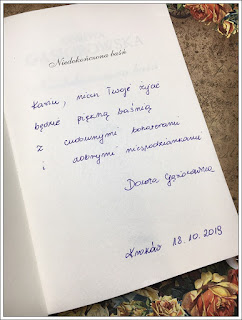 Niedokończona baśń
Kasiu, niech Twoje życie
będzie piękną baśnią
z cudownymi bohaterami
i dobrymi niespodziankami
Dorota Gąsiorowska
Kraków 18.10.2019